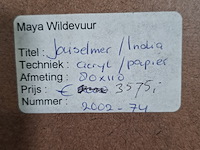 Maya Wildevuur
Titel: Jaiselmer/India
Techniek: acryl/papier
Afmeting: 80x110
Prijs: € 3575,-
Nummer: 2002-74